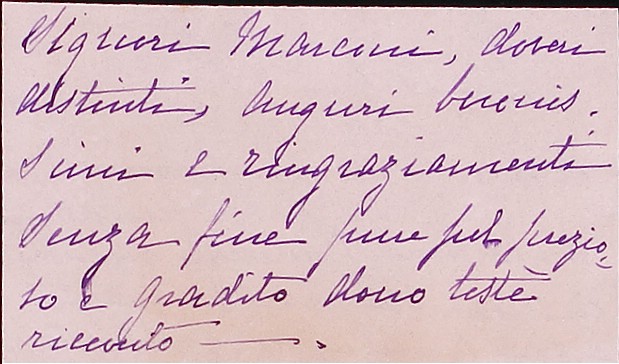 Signori Marconi, doveri
distinti, auguri buonis.
simi e ringraziamenti
senza fine pure pel prezio-
so e gradito dono testè
ricevuto — .